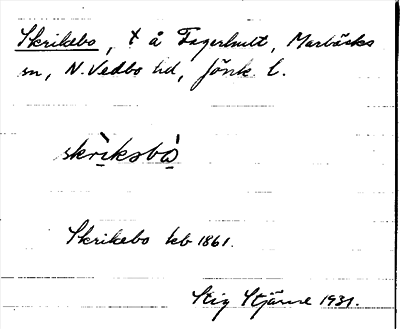 Skrikebo, + å Fagerhult, Marbäcks
sn, N. Vedbo hd, Jönk. l.
skrìksbò
Skrikebo kb 1861.
Stig Stjärne 1931.